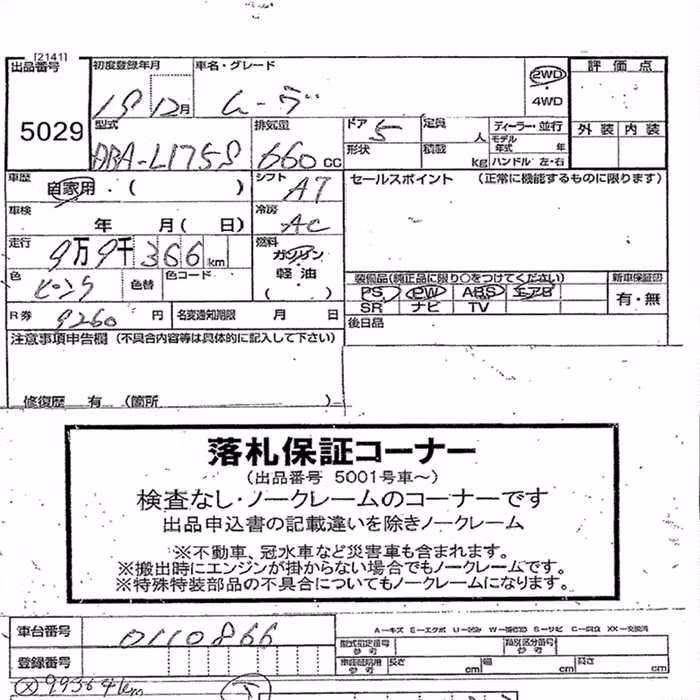 [2141]
出品番号 初度登録年月 車名・グレード 評価点
5029 18 12月 ムーヴ 2WD
4WD 外装 内装
型式 排気量 ドア 5 定員 人 ディーラー・並行
DBA-L175S 660cc 形状 積載 kg モデル年式 年 ハンドル 左・右
車歴 自家用・( ) シフト AT セールスポイント (正常に機能するものに限ります)
車検 年 月( 日) 冷房 AC
走行 9万9千366km 燃料 ガソリン
軽油
( )
色 ピンク 色替 色コード 装備品(純正品に限り○をつけてください) 新車保証書
PS PW ABS エアB 有・無
SR ナビ TV
R券 9260円 名変通知期限 月 日 後日品
注意事項申告欄 (不具合内容等は具体的に記入して下さい)
修復歴 有 (箇所 )
落札保証コーナー
(出品番号 5001号車~)
検査なし・ノークレームのコーナーです
出品申込書の記載違いを除きノークレーム
※不動車、冠水車など災害車も含まれます。
※搬出時にエンジンが掛からない場合でもノークレームです。
※特殊特装部品の不具合についてもノークレームになります。
車台番号 0110866
A-キズ E-エクボ U-凹み
型式指定番号 参考 類別区分番号 参考
登録番号 長さ cm 幅 cm 高さ cm
99364km